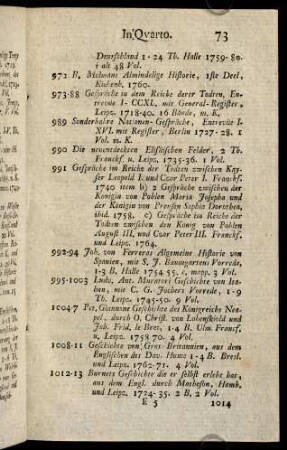 In Qvarto. 73
Deutschland 1-24 Th. Halle 1759-80.
i alt 48 Vol.
972 B. Melmans Almindelige Historie, 1ste Deel,
Kiøbenh. 1760.
973-88 Gespräche in dem Reiche derer Todten, En-
trevüe I-CCXL, mit General-Register,
Leipz. 1718-40. 16 Bände, m. K.
989 Sonderbahre Nationen-Gespräche, Entrevüe I-
XVI. mit Register, Berlin 1727-28. 1
Vol. m. K.
990 Die neuentdeckten Elisäischen Felder, 2 Th.
Franckf. u. Leipz. 1735-36. 1 Vol.
991 Gespräche im Reiche der Todten zwischen Key-
ser Leopold I. und Czar Peter I. Franckf.
1740 item b) 2 Gespräche zwischen der
Königin von Pohlen Maria Josepha und
der Königin von Preussen Sophia Dorothea,
ibid. 1758. c) Gespräche im Reiche der
Todten zwischen den König von Pohlen
August III. und Czar Peter III. Franckf.
und Leipz. 1764.
992-94 Joh. von Ferreras Allgemeine Historie von
Spanien, mit S. J. Baumgartens Vorrede,
1-3 B. Halle 1754 55. c. mapp. 3 Vol.
995-1003 Ludv. Ant. Muratori Geschichte von Ita-
lien, mit C. G. Jöchers Vorrede, 1-9
Th. Leipz. 1745-50. 9 Vol.
1004-7 Pet. Giannone Geschichte des Königreichs Nea-
pel, durch O. Christ. von Lohenschiold und
Joh. Frid. le Bret, 1-4 B. Ulm. Francf.
u. Leipz. 1758 70. 4 Vol.
1008-11 Geschichte von Gros-Britannien, aus dem
Englischen des Dav. Hume 1-4 B. Bresl.
und Leipz. 1762-71. 4 Vol.
1012-13 Burnets Geschichte die er selbst erlebt hat,
aus dem Engl. durch Matheson, Hamb.
und Leipz. 1724-35. 2 B. 2 Vol.
E 5 1014